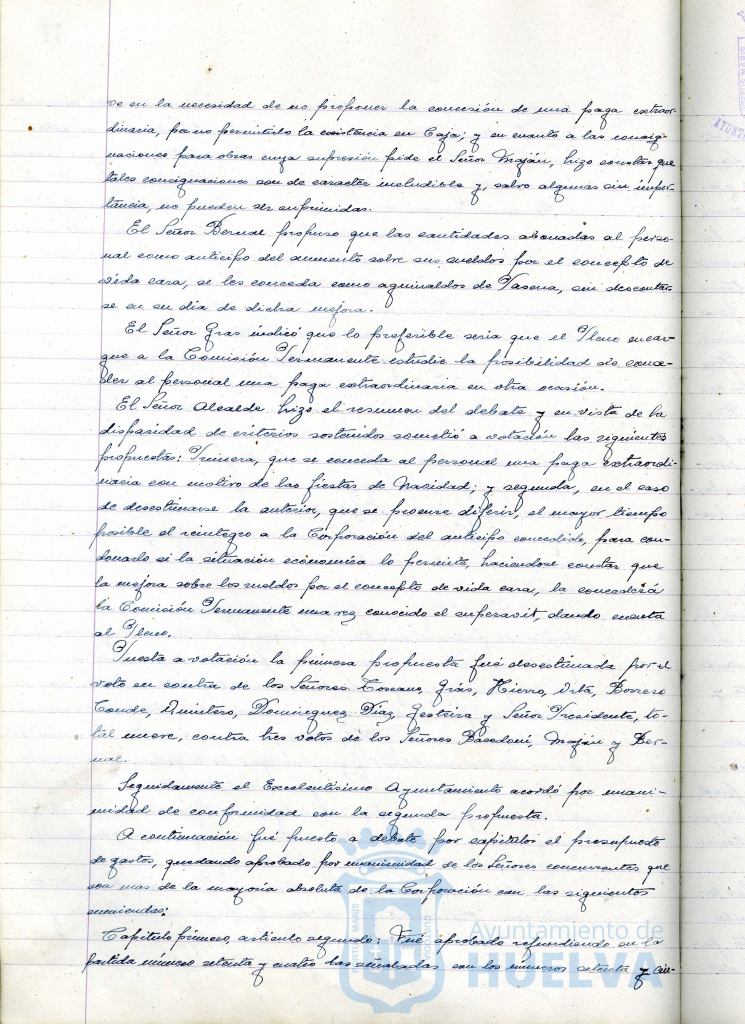 ve en la necesidad de no proponer la concesión de una paga extraor-
dinaria, por no permitirlo la existencia en Caja; y en cuanto a las consig-
naciones para obras cuya supresión pide el Señor Maján, hizo constar que
tales consignaciones son de caracter ineludible y, salvo algunas sin impor-
tancia, no pueden ser suprimidas.
El Señor Bernal propuso que las cantidades abonadas al perso-
nal como anticipo del aumento sobre sus sueldos por el concepto de
vida cara, se les conceda como aguinaldos de Pascua, sin descontar-
se en su dia de dicha mejora.
El Señor Gras indicó que lo preferible seria que el Pleno encar-
gue a la Comisión Permanente estudie la posibilidad de conce-
der al personal una paga extraordinaria en otra ocasión.
El Señor Alcalde hizo el resumen del debate y en vista de la
disparidad de criterios sostenidos sometió a votación las siguientes
propuestas: Primera, que se conceda al personal una paga extraordi-
naria con motivo de las fiestas de Navidad; y segunda, en el caso
de desestimarse la anterior, que se procure diferir, el mayor tiempo
posible el reintegro a la Corporación del anticipo concedido, para con-
donarlo si la situación económica lo permite, haciendose constar que
la mejora sobre los sueldos por el concepto de vida cara, la concederá
la Comisión Permanente una vez conocido el superavit, dando cuenta
al Pleno.
Puesta a votación la primera propuesta fué desestimada por el
voto en contra de los Señores Toscano, Grás, Hierro, Orta, Borrero
Conde, Quintero, Dominguez Diaz, Gesteira y Señor Presidente, to-
tal nueve, contra tres votos de los Señores Maján y Ber-
nal.
Seguidamente el Excelentisimo Ayuntamiento acordó por unani-
midad de conformidad con la segunda propuesta.
A continuación fué puesto a debate por capitulos el presupuesto
de gastos, quedando aprobado por unanimidad de los Señores concurrentes que
son mas de la mayoria absoluta de la Corporación con las siguientes
enmiendas:
Capitulo primero, articulo segundo: Fué aprobado refundiendo en la
partida número setenta y cuatro las señaladas con los números setenta y cin-
Ayuntamiento de
HUELVA